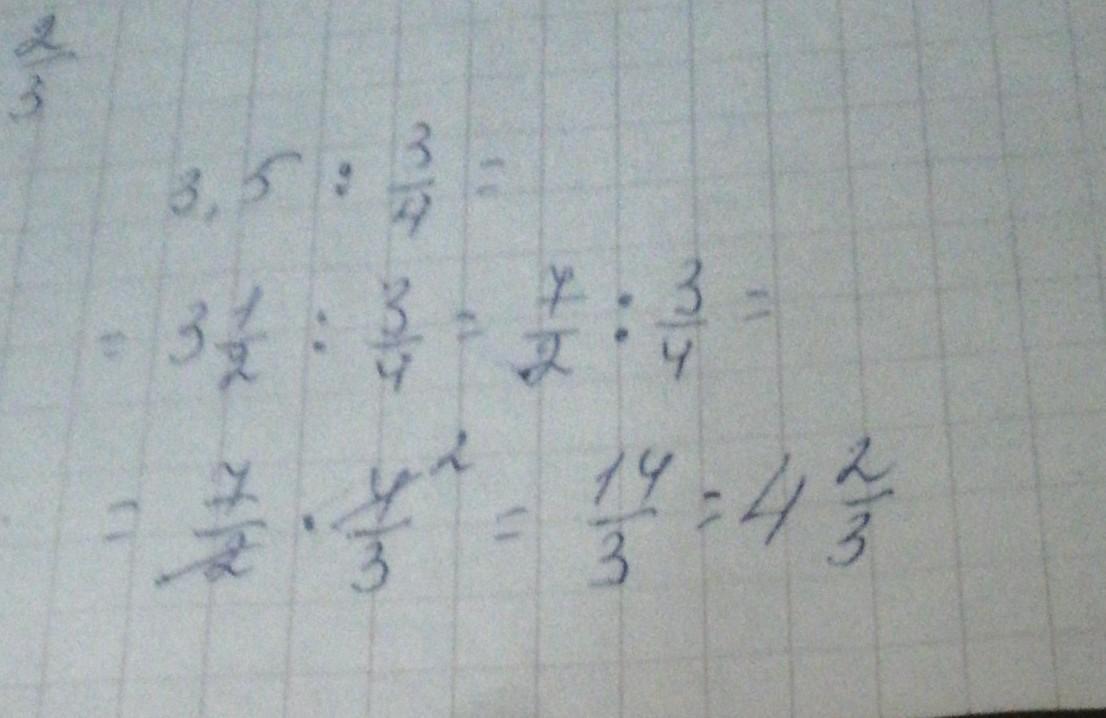 2/3
3,5 : 3/4 =
= 3 1/2 : 3/4 = 7/2 : 3/4 =
= 7/2 · 4/3 2 = 14/3 = 4 2/3